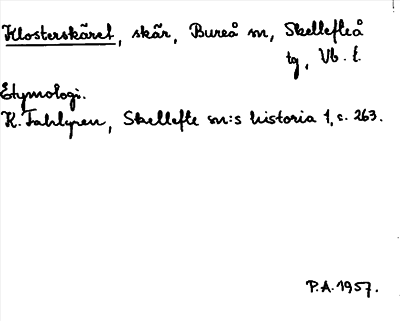 Klosterskäret, skär, Bureå sn, Skellefteå
tg, Vb. l.
Etymologi.
K. Fahlgren, Skellefte sn:s historia 1, s. 263.
P.A. 1957.